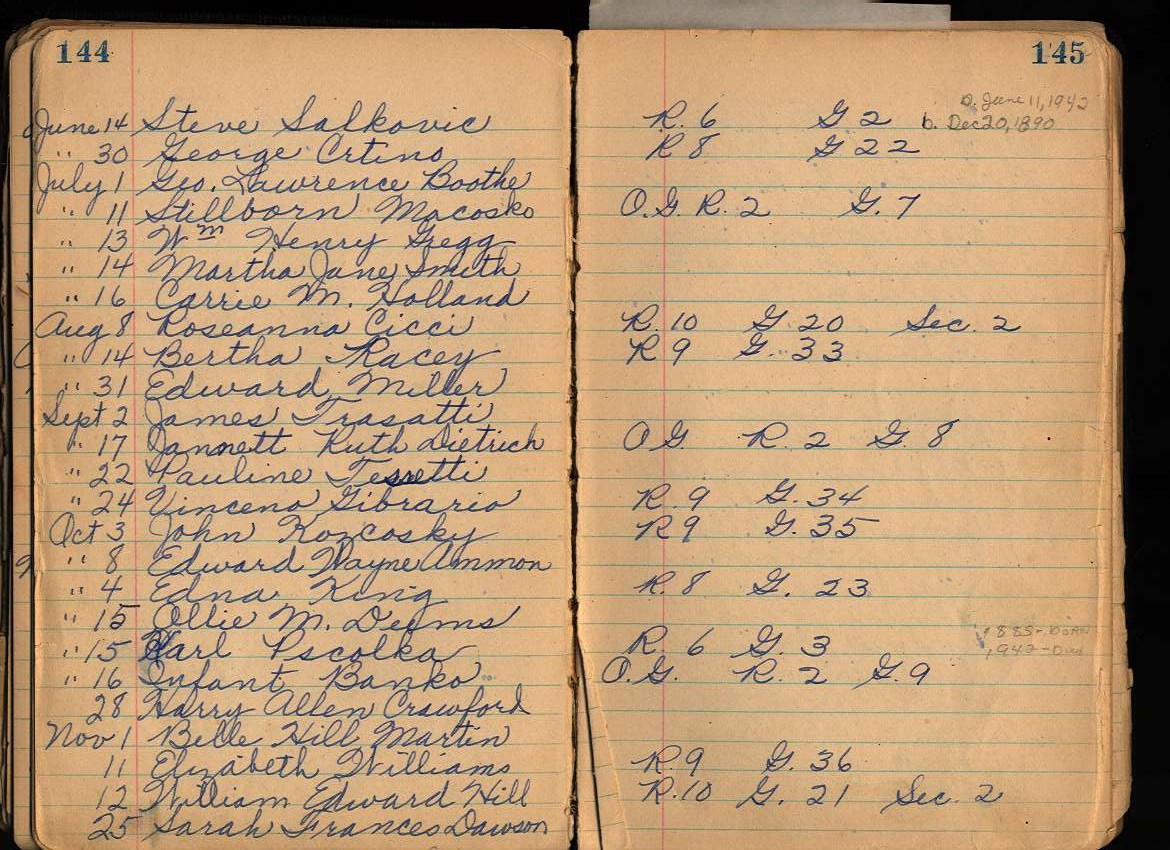 144
June 14 Steve Salkovic
" 30 George Crtino
July 1 Geo. Lawrence Boothe
" 11 Stillborn Macosko
" 13 Wm Henry Gregg
" 14 Martha Jane Smith
" 16 Carrie M. Holland
Aug 8 Roseanna Cicci
" 14 Bertha Racey
" 31 Edward Miller
Sept 2 James Trasatti
" 17 Jannett Ruth Dietrich
" 22 Pauline Tessetti
" 24 Vinceno Gibrario
Oct 3 John Kozcosky
" 8 Edward Wayne Ammon
" 4 Edna King
" 15 Ollie M. Deems
" 15 Karl Pscolka
" 16 Infant Banko
28 Harry Allen Crawford
Nov 1 Belle Hill Martin
11 Elizabeth Williams
12 William Edward Hill
25 Sarah Frances Dawson
145
D. June 11, 1942
R. 6 G 2 b. Dec 20, 1890
R 8 G 22
O.G. R. 2 G. 7
R. 10 G. 20 Sec. 2
R 9 G. 33
O G. R. 2 G. 8
R. 9 G. 34
R 9 G. 35
R. 8 G. 23
1885 - Born
R. 6 G. 3 1942 - Died
O.G. R. 2 G. 9
R 9 G. 36
R. 10 G. 21 Sec. 2